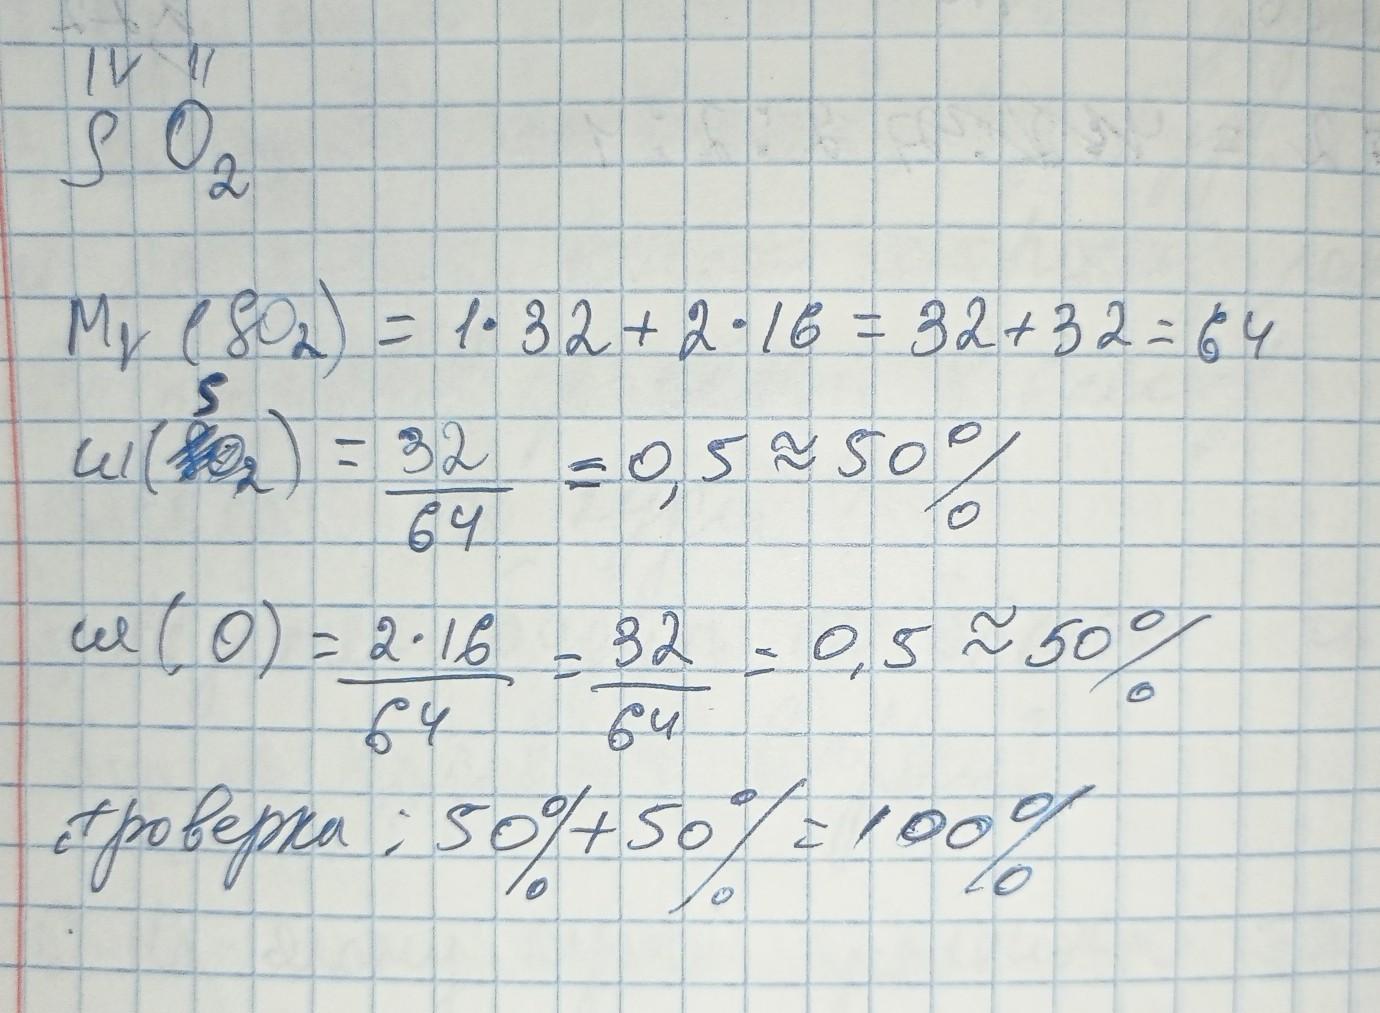 IV II
S O₂
Mr (SO₂) = 1·32 + 2·16 = 32 + 32 = 64
ω(S) = 32/64 = 0,5 ≈ 50%
ω(O) = 2·16/64 = 32/64 = 0,5 ≈ 50%
проверка: 50% + 50% = 100%